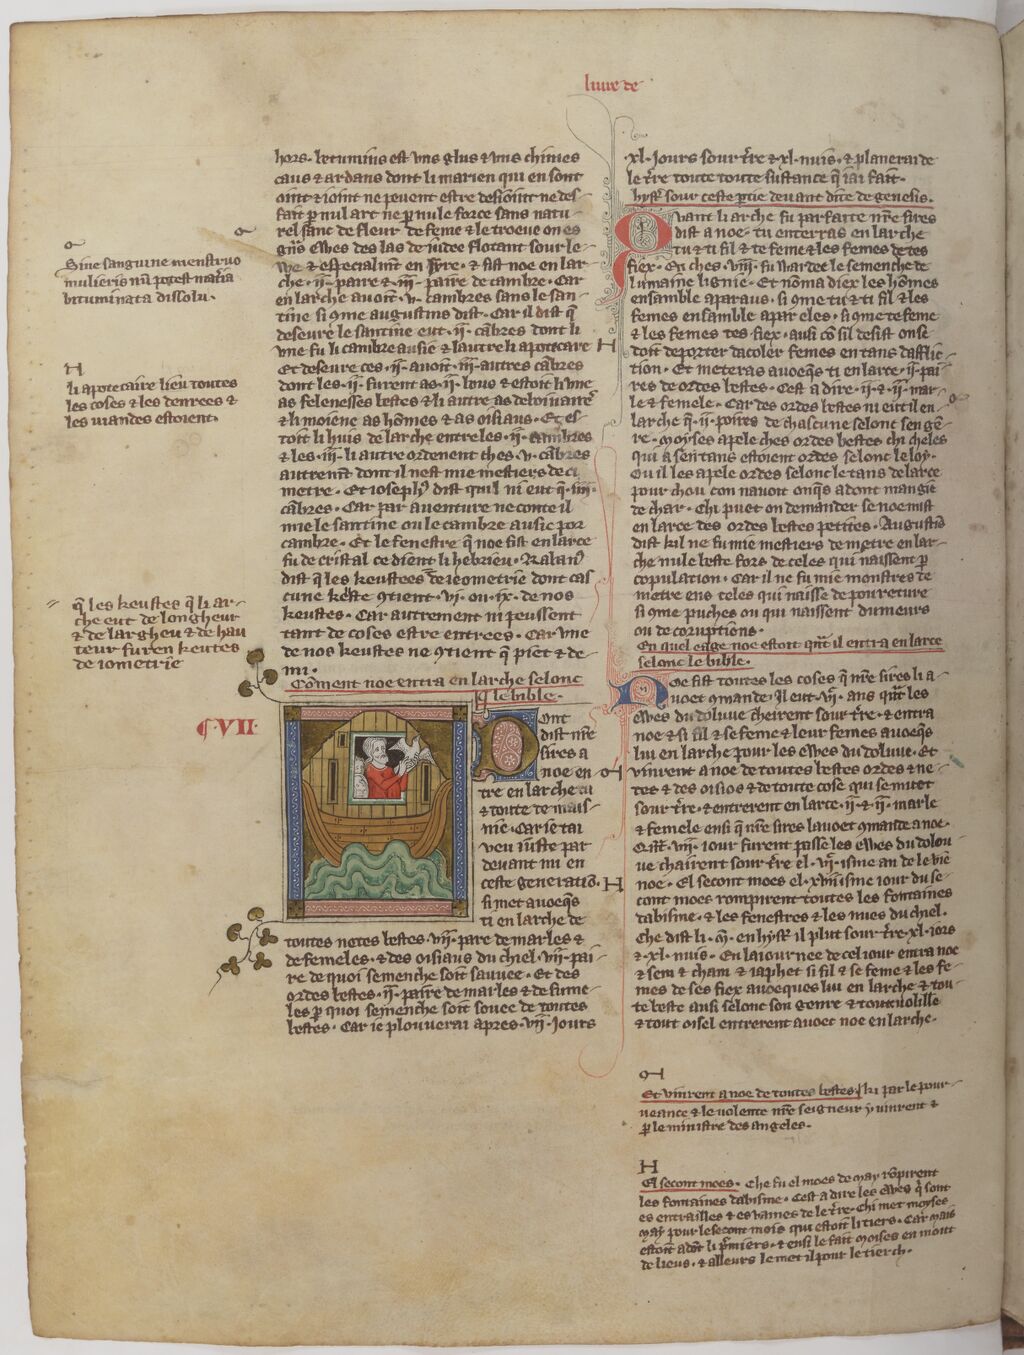 liure de
hors. betumins est vns glus & vns chimes
caus & ardans dont li marien qui en sont
oint & ioint ne peuent estre desioint ne des-
fait p nul art ne p nule force sans natu-
rel sanc de fleur de feme & le troeue on es
ewes des las de iudee flotant sour le-
we & especialmt en syre. & fist noe en lar-
che .ii. paire & .iii. paire de cambre. Car
en larche auoit .v. cambres sans le san-
tine si 9me augustins dist. Car il dist q
deseure le santine eut .ii. cabres dont li
vne fu li cambre ausie & lautre li apotecare
Et deseure ces .ii. auoit .iii. autres cabres
dont les .ii. furent as .ii. bous & estoit li vne
as felenesses bestes & li autre as debonaires
& li moiene as homes & as oisiaus. Et es-
toit li huis de larche entre les .ii. cambres
& les .iii. li autre ordenent ches .v. cabres
autremt dont il nest mie mestiers de ci
metre. Et ioseph9 dist quil ni eut q .iiii.
cabres. Car par auenture ne conte il
mie le santine ou le cambre ausie por
cambre. Et le fenestre q noe fist en larce
fu de cristal ce dient li hebrieu. Raban9
dist q les keustees de ieometrie dont cas
cune keste 9tient .vi. ou .ix. de nos
keustes. Car autrement ni peussent
tant de coses estre entrees. Car vne
de nos keustes ne 9tient q piet & de-
mi.
Coment noe entra en larche selonc
le bible.
C. VII.
Dont
dist nre
sires a
noe en
tre en larche tu
& toute te mais-
nie. Car ie tai
veu iuste par
deuant mi en
ceste generatio.
si met auoeqs
ti en larche de
toutes netes bestes .vii. pare de marles &
de femeles. & des oisiaus du chiel .vii. pai-
re de quoi semenche soit sauuee. Et des
ordes bestes .ii. paire de marles & de fume-
les p quoi semenche soit sauee de toutes
bestes. Car ie plouuerai apres .vii. iours
Sine sanguine menstruo
mulieris nu potest materia
bituminata dissolui.
H
li apotecaire lieu toutes
les coses & les denrees &
les viandes estoient.
q les keustes q li ar-
che eut de longheur
& de largheu & de hau
teur furen keutes
de iometrie
.xl. iours sour tre & .xl. nuis. & planerai de
le tre toute toute sustance q iai fait.
hyst sour ceste ptie deuant dite de genesis.
Quant li arche fu parfaite nre sires
dist a noe. tu enterras en larche
tu & ti fil & te feme & les femes de tes
fiex. En ches .viii. fu wardee le semenche de
lumaine lignie. Et noma diex les homes
ensamble aparaus. si 9me tu & ti fil & les
femes ensamble apar eles. si 9me te feme
& les femes tes fiex. ausi co sil desist on se
doit deporter dacoler femes en tans dafflic-
tion. Et meteras auoeqs ti en larce .ii. pai-
res de ordes bestes. Cest a dire .ii. & .ii. mar-
le & femele. Car des ordes bestes ni eut il en
larche q .ii. poires de chascune selonc sen ge-
re. Moyses apele ches ordes bestes chi cheles
qui a sen tans estoient ordes selonc le loy.
Ou il les apele ordes selonc le tans de larce
pour chou con nauoit onqs adont mangie
de char. Chi puet on demander se noe mist
en larce des ordes bestes petites. Augustins
dist kil ne fu mie mestiers de metre en lar-
che nule beste fors de celes qui naissent p
copulation. Car il ne fu mie monstres de
metre ens celes qui naisse de poureture
si 9me puches ou qui naissent dumeurs
ou de coruptions.
En quel eage noe estoit qnt il entra en larce
selonc le bible.
Noe fist toutes les coses q nre sires li a-
uoet 9mande. Il eut .vi. ans qnt les
ewes du doluue cheirent sour tre. & entra
noe & si fil & se feme & leur femes auoeqs
lui en larche pour les ewes du doluue. Et
vinrent a noe de toutes bestes ordes & ne-
tes & des oisios & de toute cose qui se muet
sour tre. & entrerent en larce .ii. & .ii. marle
& femele ensi q nre sires lauoet 9mande a noe.
Qnt .vii. iour furent passe les ewes du dolou-
ue chairent sour tre el .vi. isme an de le vie
noe. El secont moes el .xviiisme iour du se-
cont moes rompirent toutes les fontaines
dabisme. & les fenestres & les nues du chiel.
Che dist li .m. en hyst il plut sour tre .xl. iors
& .xl. nuis. En la iournee de cel iour entra noe
& sem & cham & iaphet si fil & se feme & les fe-
mes de ses fiex auoeques lui en larche & tou-
te beste ausi selonc son genre & tout uolille
& tout oisel entrerent auoec noe en larche.
Et vinrent a noe de toutes bestes. ki par le pour-
ueance & le volente nre seigneur y vinrent &
p le ministre des angeles.
H
El secont moes. Che fu el moes de may ropirent
les fontaines dabisme. Cest a dire les ewes q sont
es entrailles & es vaines de le tre. Chi met moyses
may pour le secont mois qui estoit li tiers. Car mais
estoit adot li pmiers. & ensi le fait moises en mout
de lieus. & alleurs le met il pour le tierch.